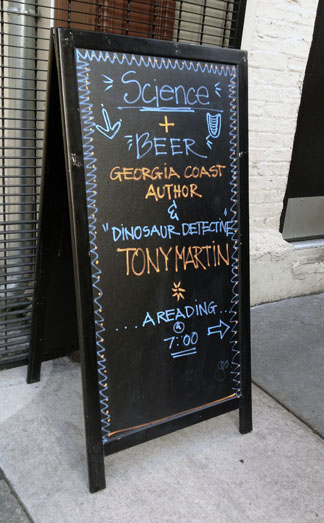 Science
+
BEER
GEORGIA COAST
AUTHOR
&
"DINOSAUR DETECTIVE"
TONY MARTIN
....A READING...
@
7:00